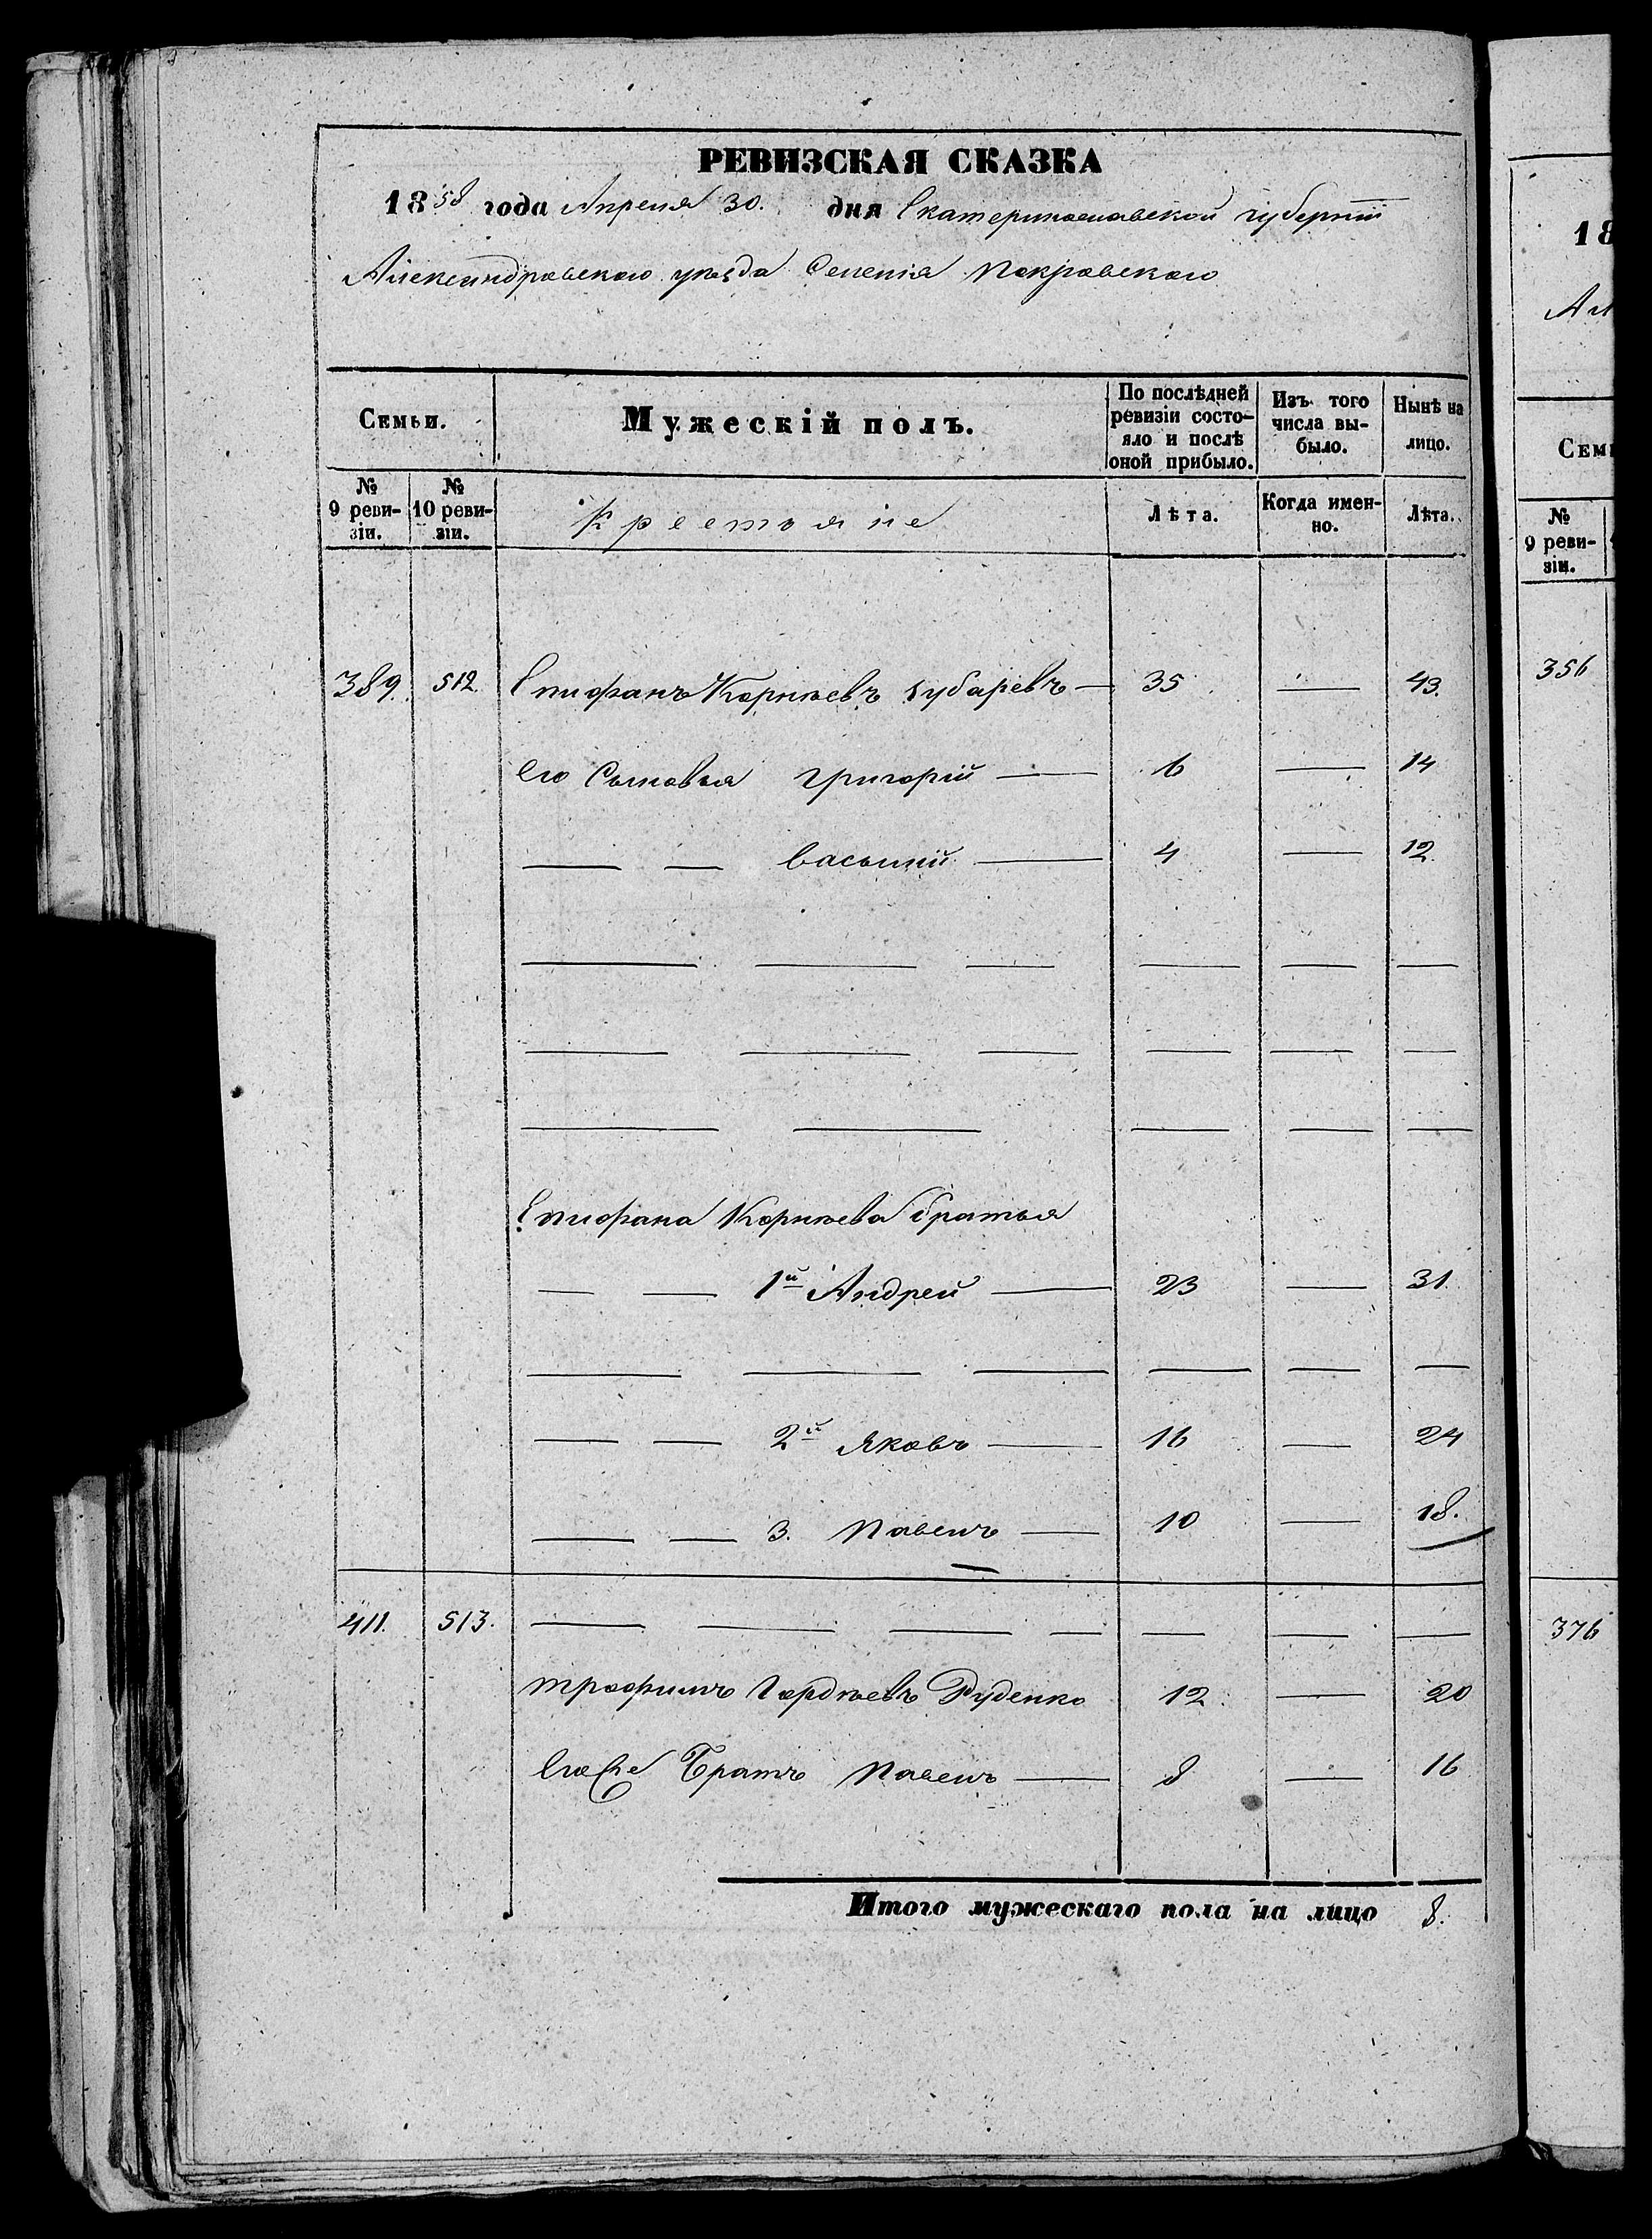 РЕВИЗСКАЯ СКАЗКА
1858 года Апреля 30. дня Екатеринославской губернiи
Александровскаго уѣзда Селенiя Покровскаго
Семьи. Мужескiй полъ. По послѣдней ревизiи состо-яло и послѣ оной прибыло. Изъ того числа вы-было. Нынѣ на лицо.
№ 9 реви-зiи. № 10 реви-зiи. Крестьяне Лѣта. Когда имен-но. Лѣта.
389. 512. Епифанъ Корнѣевъ — 35 — 43.
Его Сыновья Григорiй — 6 — 14
— — Василiй — 4 — 12.
Епифана Корнѣева братья
— — 1й Андрей — 23 — 31.
— — 2й Яковъ — 16 — 24
— — 3. Павелъ — 10 — 18.
411. 513. — — — — — — —
Трофимъ Гордѣевъ Руденко 12. — 20
Егоже Братъ Павелъ — 8 — 16
Итого мужескаго пола на лицо 8.
18
Ал
Семь
№ 9 реви-зiи.
356
376